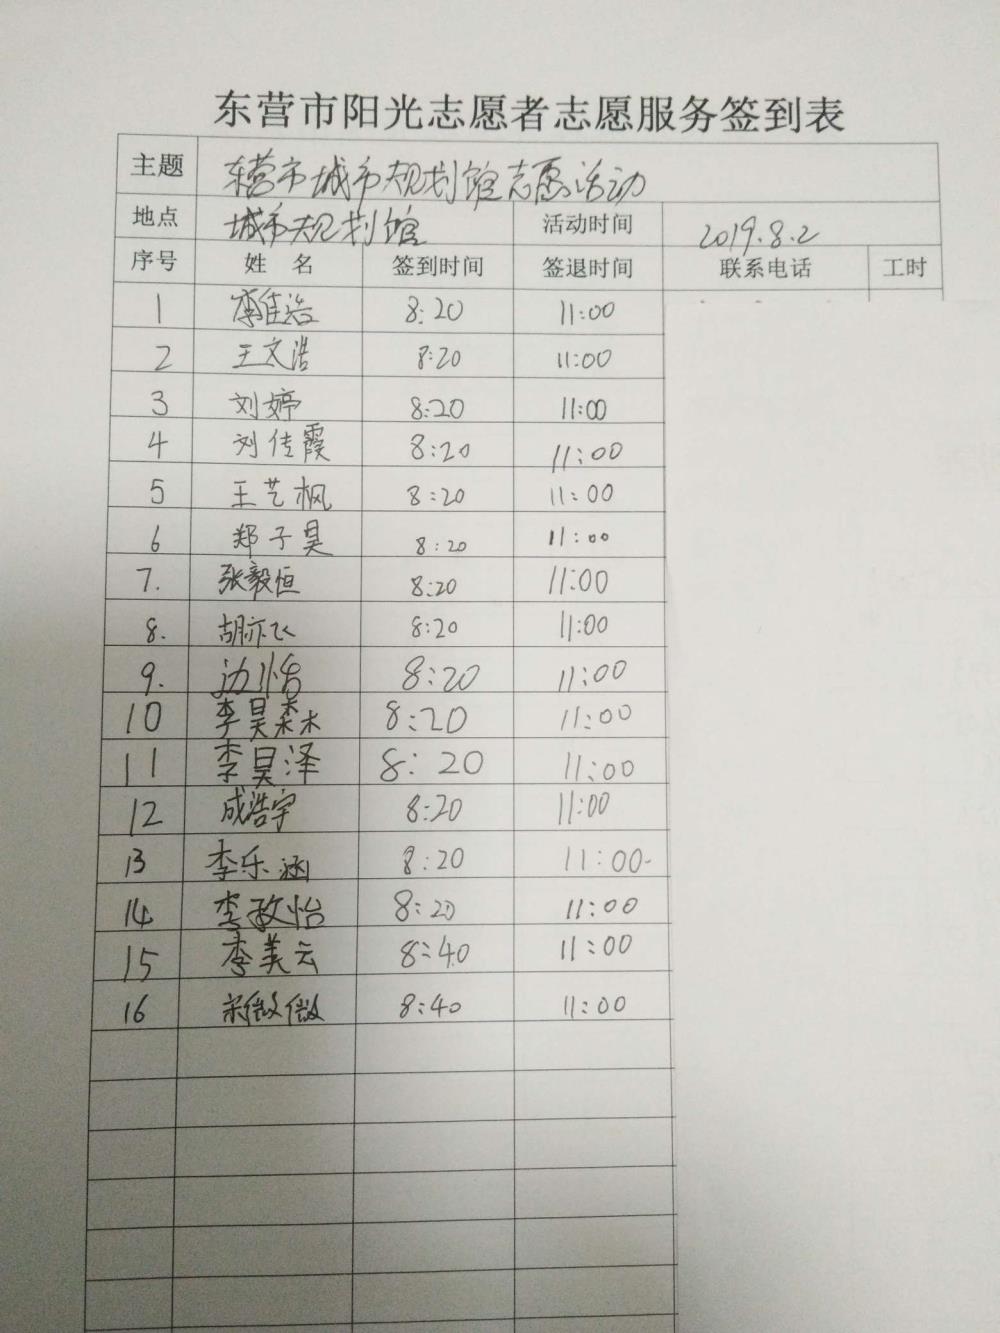 东营市阳光志愿者志愿服务签到表
主题 东营市城市规划馆志愿活动
地点 城市规划馆 活动时间 2019.8.2
序号 姓名 签到时间 签退时间 联系电话 工时
1 李佳浩 8:20 11:00
2 王文浩 8:20 11:00
3 刘婷 8:20 11:00
4 刘佳霞 8:20 11:00
5 王艺枫 8:20 11:00
6 郑子昊 8:20 11:00
7. 张毅恒 8:20 11:00
8. 胡亦飞 8:20 11:00
9. 边怡 8:20 11:00
10 李昊森 8:20 11:00
11 李昊泽 8:20 11:00
12 成浩宇 8:20 11:00
13 李乐涵 8:20 11:00
14 李政怡 8:20 11:00
15 李美云 8:40 11:00
16 宋微微 8:40 11:00